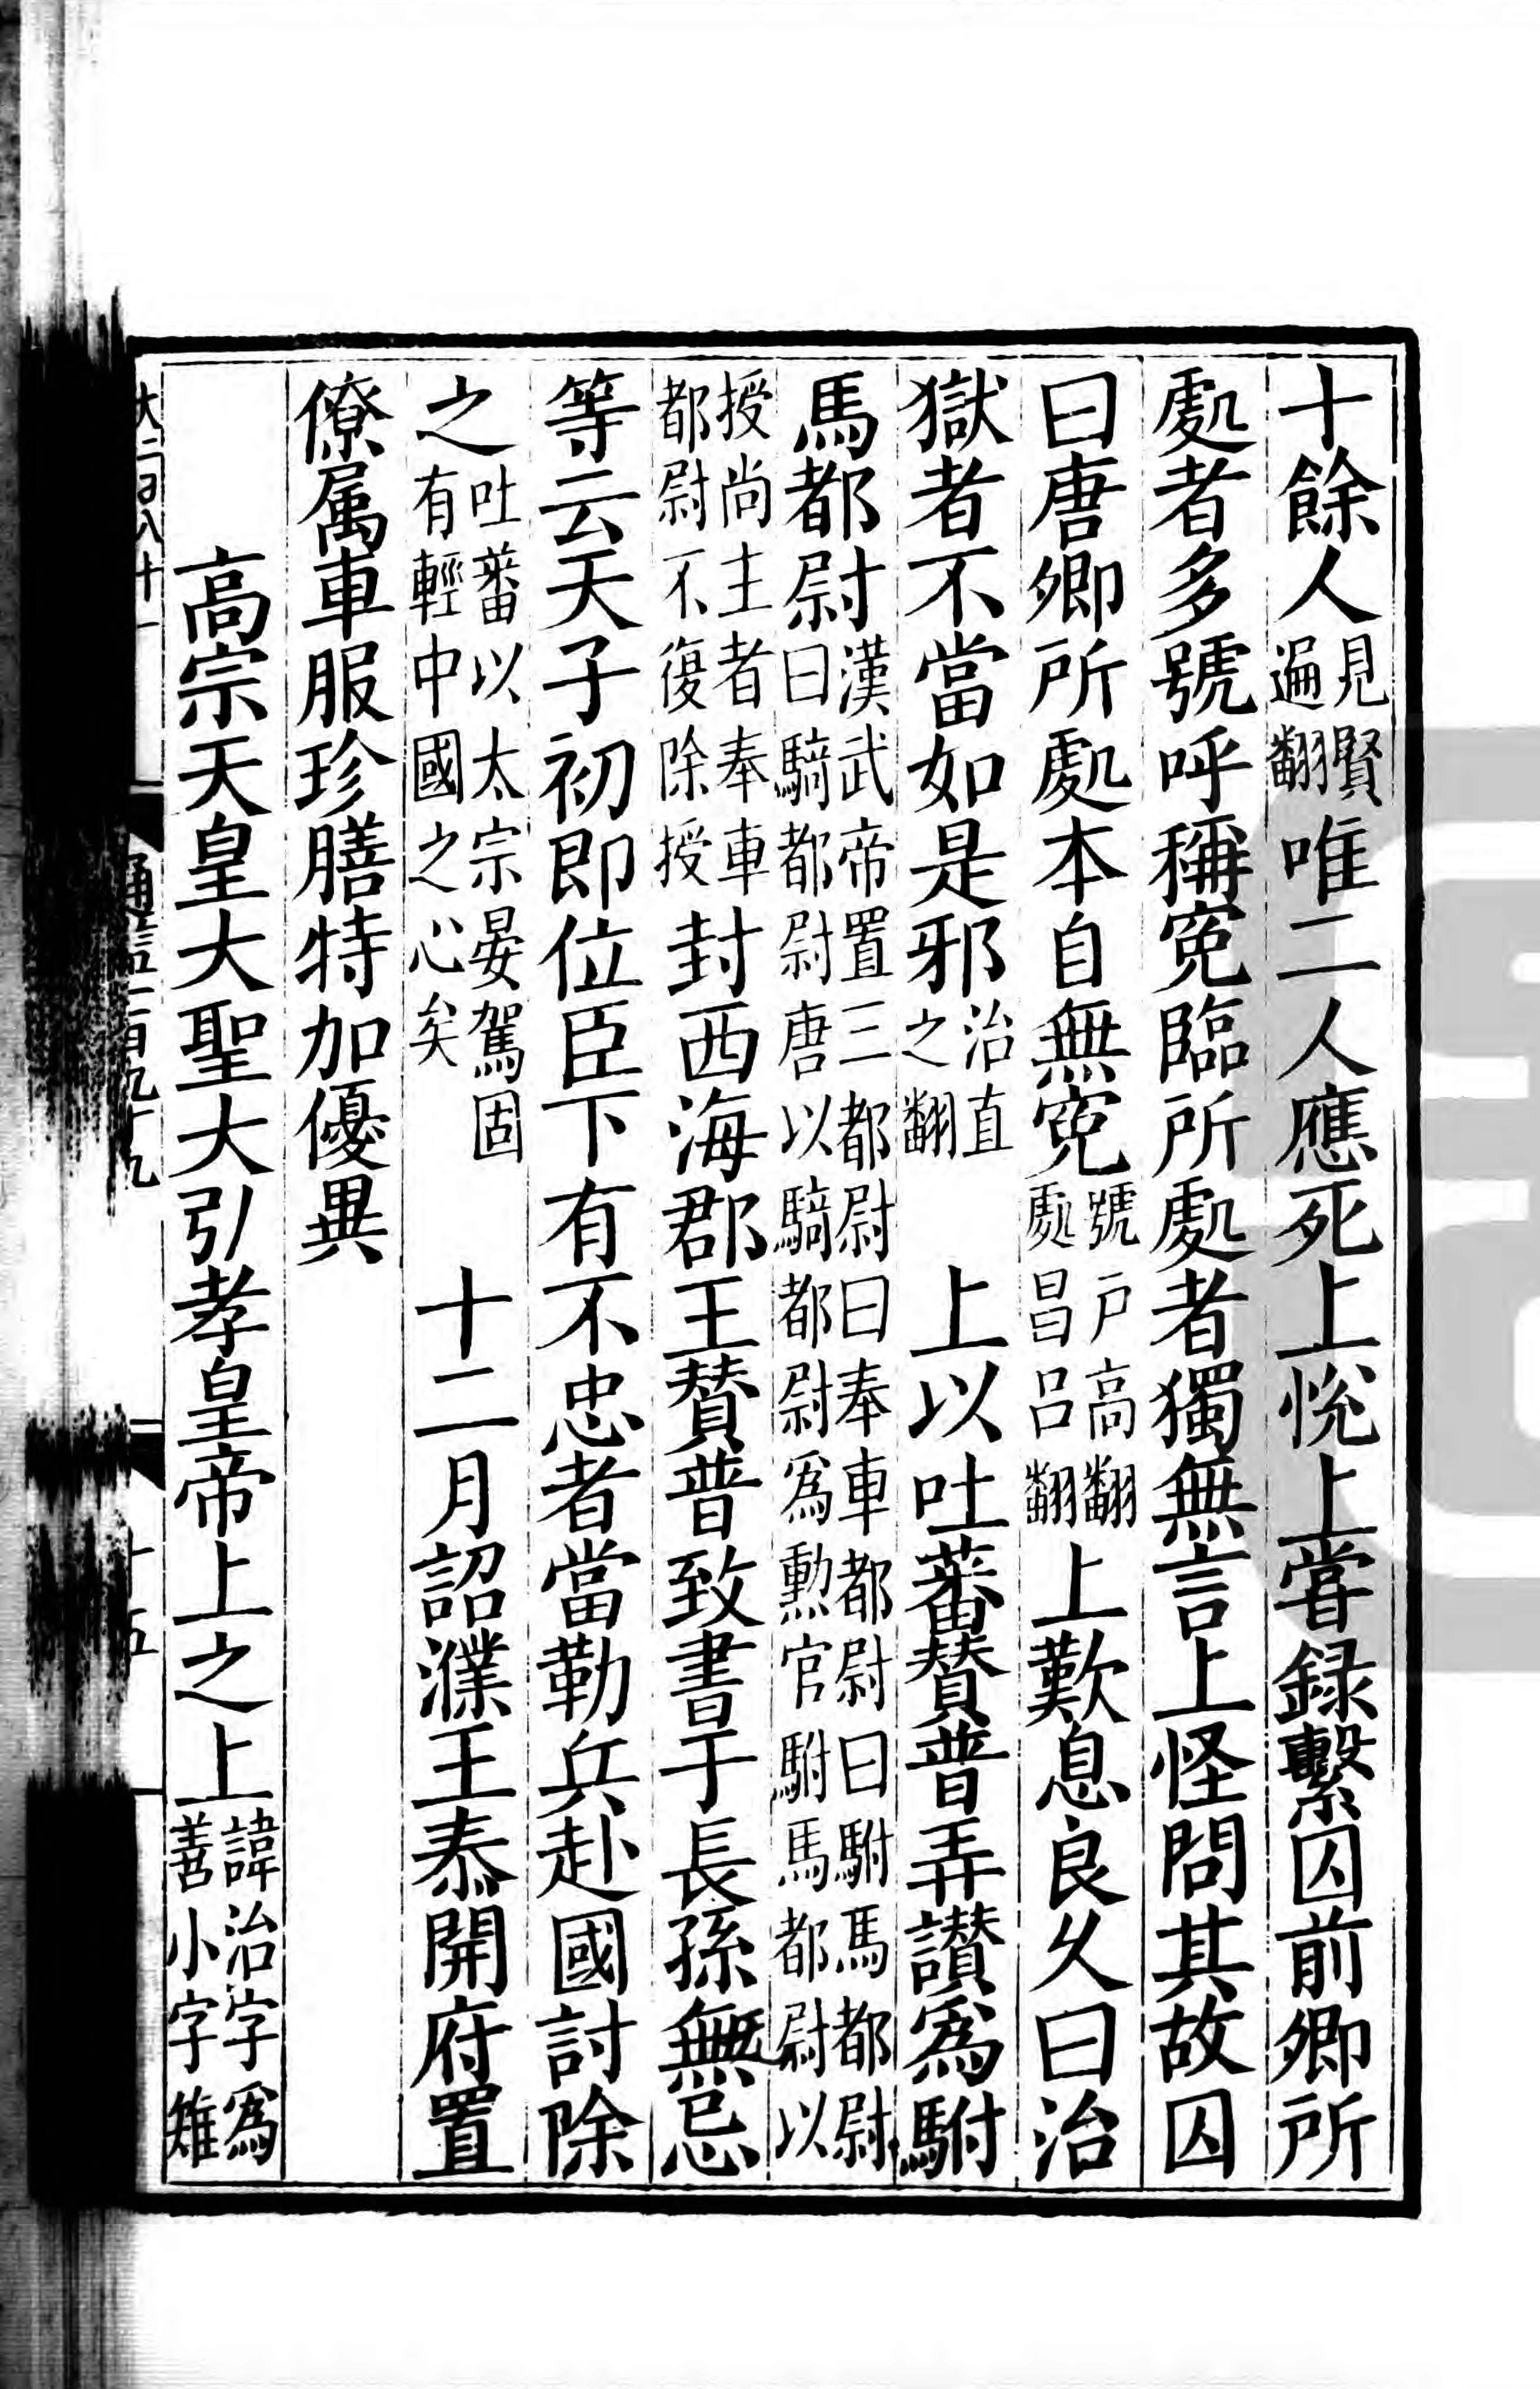 十餘人見賢遍翻唯二人應死上悅上甞録繫囚前卿所
處者多號呼稱寃臨所處者獨無言上怪問其故囚
曰唐卿所處本自無寃號戶高翻處昌呂翻上歎息良久曰治
獄者不當如是邪治直之翻上以吐蕃賛普弄讃爲駙
馬都尉漢武帝置三都尉曰奉車都尉曰駙馬都尉曰騎都尉唐以騎都尉爲勲官駙馬都尉以
授尚主者奉車都尉不復除授封西海郡王賛普致書于長孫無忌
等云天子初即位臣下有不忠者當勒兵赴國討除
之吐蕃以太宗晏駕固有輕中國之心矣十二月詔濮王泰開府置
僚属車服珍膳特加優異
高宗天皇大聖大引孝皇帝上之上諱治字爲善小字雉